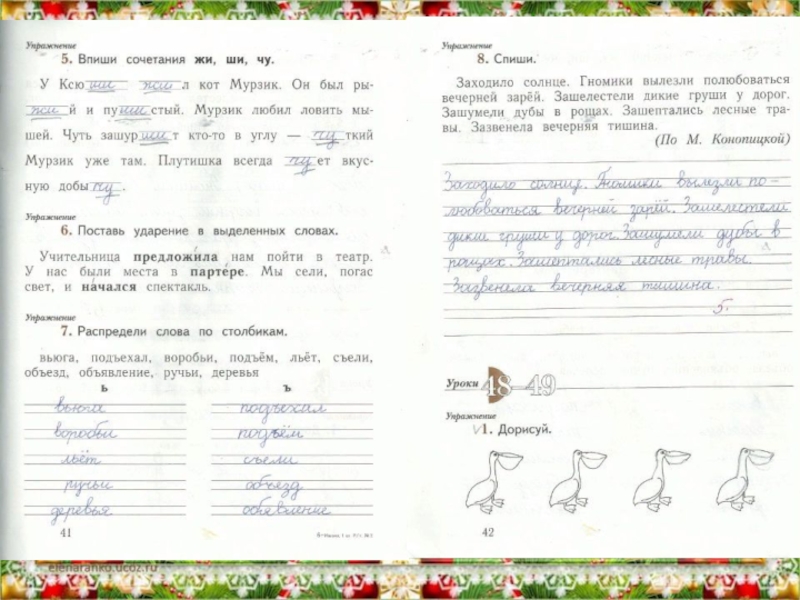 Упражнение
5. Впиши сочетания жи, ши, чу.
У Ксюши жил кот Мурзик. Он был ры-
жий и пушистый. Мурзик любил ловить мы-
шей. Чуть зашуршит кто-то в углу — чуткий
Мурзик уже там. Плутишка всегда чует вкус-
ную добычу.
Упражнение
6. Поставь ударение в выделенных словах.
Учительница предложи́ла нам пойти в театр.
У нас были места в парте́ре. Мы сели, погас
свет, и начался́ спектакль.
Упражнение
7. Распредели слова по столбикам.
вьюга, подъехал, воробьи, подъём, льёт, съели,
объезд, объявление, ручьи, деревья
ь ъ
вьюга подъехал
воробьи подъём
льёт съели
ручьи объезд
деревья объявление
41
Упражнение
8. Спиши.
Заходило солнце. Гномики вылезли полюбоваться
вечерней зарёй. Зашелестели дикие груши у дорог.
Зашумели дубы в рощах. Зашептались лесные тра-
вы. Зазвенела вечерняя тишина.
(По М. Конопицкой)
Заходило солнце. Гномики вылезли по-
любоваться вечерней зарёй. Зашелестели
дикие груши у дорог. Зашумели дубы в
рощах. Зашептались лесные травы.
Зазвенела вечерняя тишина.
5.
Уроки 48—49
Упражнение
√1. Дорисуй.
42
elenaranko.ucoz.ru